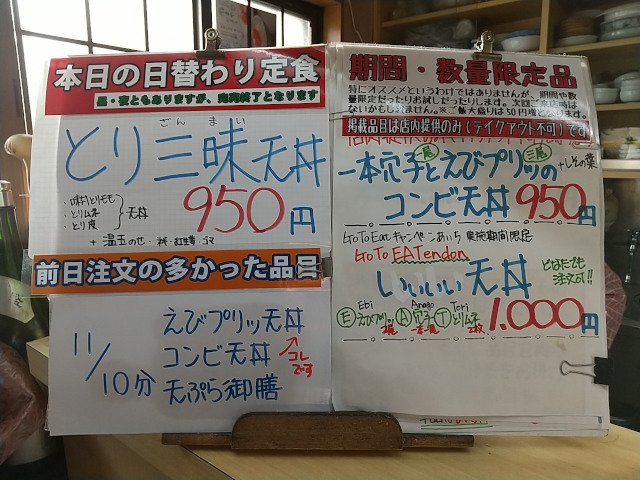 本日の日替わり定食
昼・夜ともありますが、完売終了となります
ざんまい
とり三昧天丼
950円
・味付とりモモ
・とりムネ
・とり皮
天丼
+温玉のせ・
前日注文の多かった品目
11/10分
えびプリッ天丼
コンビ天丼
コレです
天ぷら御膳
期間・数量限定品
特にオススメというわけではありませんが、期間や数
量限定だったりお試しだったりします。次回ご来店時は
ないかもしれません。※ご飯大盛りは50円増となります
掲載品目は店内提供のみ(テイクアウト不可)です
一本穴子とえびプリッの
二尾
+しその葉
コンビ天丼 950円
Go To Eatキャンペーンあいち 実施期間限定
Go To EATendon
いいいい天丼
注文可!!
Ebi Anago Tori
Eえびプリッ A穴子 Tとりムネ
一本 2枚
1.000円